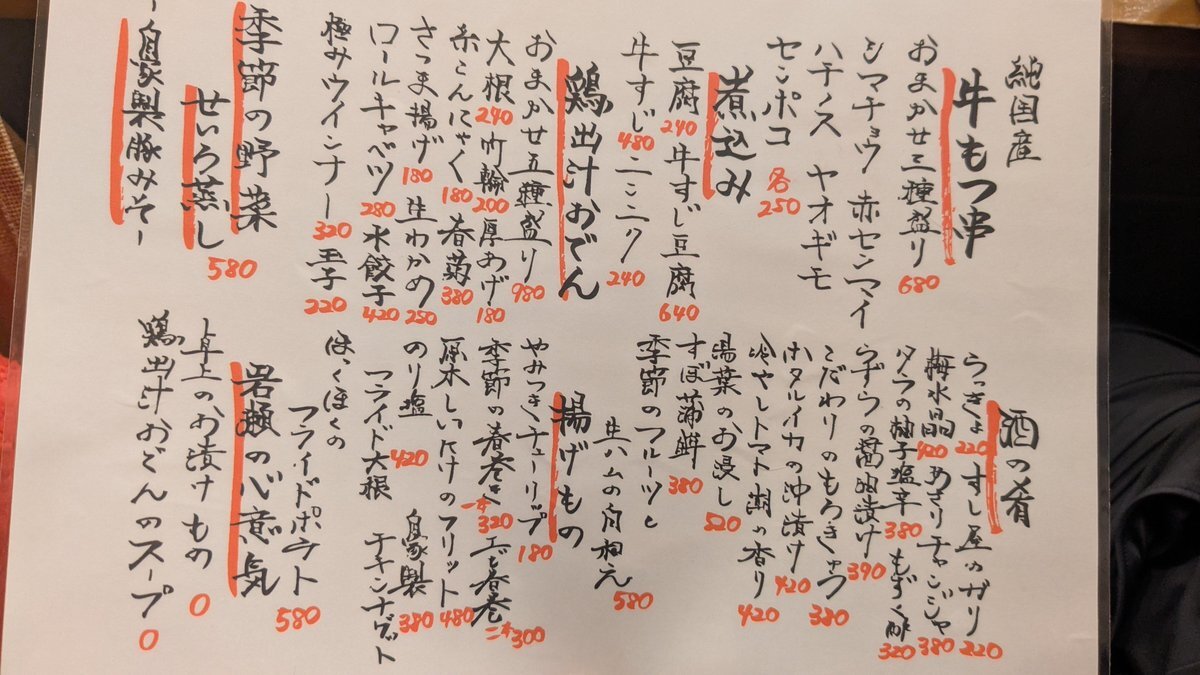 純国産
牛もつ串
おまかせ三種盛り 680
シマチョウ 赤センマイ
ハチノス ヤオギモ
センポコ 各250
煮込み
豆腐 240 牛すじ豆腐 640
牛すじ 480 ニラニク 240
鶏出汁おでん
おまかせ五種盛り 980
大根 240 竹輪 200 厚あげ 180
糸こんにゃく 180 春菊 380
さつま揚げ 180 生わかめ 250
ロールキャベツ 280 水餃子 420
極みウインナー 320 玉子 220
季節の野菜
せいろ蒸し 580
ー自家製豚みそー
酒の肴
らっきょ 220 すし屋のガリ 220
梅水晶 420 あさりチャンジャ 380
タコの柚子塩辛 380 もずく酢 320
うずらの醤油漬け 390
こだわりのもろきゅう 380
ホタルイカの沖漬け 420
冷やしトマト 胡の香り 420
湯葉のお浸し 520
すぼ蒲鉾 380
季節のフルーツと
生ハムの白和え 580
揚げもの
やみつきチューリップ 180
季節の春巻き 一本 320 エビ春巻 二本 300
原木しいたけのフリット 480
のり塩 420 自家製 380
フライド大根 チキンナゲット
ほっくほくの
フライドポテト 580
岩瀬の心意気
卓上のお漬けもの 0
鶏出汁おでんのスープ 0